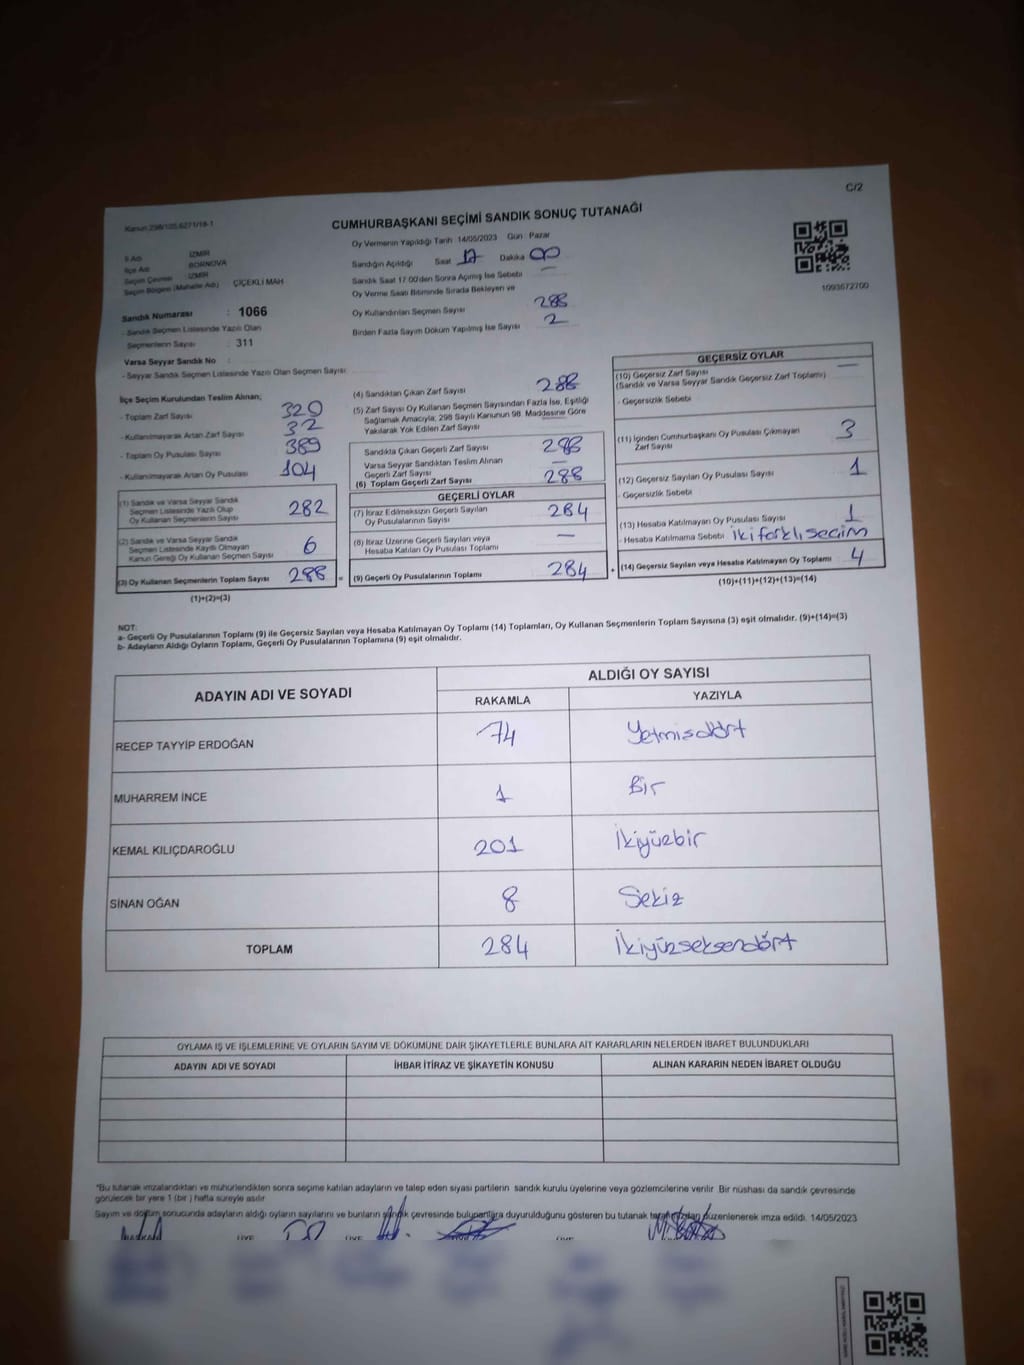 C/2
Kanun 298/105,6271/16-1
CUMHURBAŞKANI SEÇİMİ SANDIK SONUÇ TUTANAĞI
İl Adı İZMİR
İlçe Adı BORNOVA
Seçim Çevresi İZMİR
Seçim Bölgesi (Mahalle Adı) ÇİÇEKLİ MAH
Sandık Numarası : 1066
- Sandık Seçmen Listesinde Yazılı Olan
Seçmenlerin Sayısı : 311
Varsa Seyyar Sandık No :
- Seyyar Sandık Seçmen Listesinde Yazılı Olan Seçmen Sayısı
Oy Vermenin Yapıldığı Tarih 14/05/2023 Gün Pazar
Sandığın Açıldığı Saat 17 Dakika 00
Sandık Saat 17.00'den Sonra Açılmış İse Sebebi —
Oy Verme Saati Bitiminde Sırada Bekleyen ve
Oy Kullandırılan Seçmen Sayısı 288
Birden Fazla Sayım Döküm Yapılmış İse Sayısı 2
1093672700
İlçe Seçim Kurulundan Teslim Alınan;
- Toplam Zarf Sayısı 320
- Kullanılmayarak Artan Zarf Sayısı 32
- Toplam Oy Pusulası Sayısı 389
- Kullanılmayarak Artan Oy Pusulası 104
(1) Sandık ve Varsa Seyyar Sandık
Seçmen Listesinde Yazılı Olup
Oy Kullanan Seçmenlerin Sayısı 282
(2) Sandık ve Varsa Seyyar Sandık
Seçmen Listesinde Kayıtlı Olmayan
Kanun Gereği Oy Kullanan Seçmen Sayısı 6
(3) Oy Kullanan Seçmenlerin Toplam Sayısı 288
(1)+(2)=(3)
=
(4) Sandıktan Çıkan Zarf Sayısı 288
(5) Zarf Sayısı Oy Kullanan Seçmen Sayısından Fazla İse, Eşitliği
Sağlamak Amacıyla; 298 Sayılı Kanunun 98. Maddesine Göre
Yakılarak Yok Edilen Zarf Sayısı
Sandıkta Çıkan Geçerli Zarf Sayısı 288
Varsa Seyyar Sandıktan Teslim Alınan
Geçerli Zarf Sayısı —
(6) Toplam Geçerli Zarf Sayısı 288
GEÇERLİ OYLAR
(7) İtiraz Edilmeksizin Geçerli Sayılan
Oy Pusulalarının Sayısı 284
(8) İtiraz Üzerine Geçerli Sayılan veya
Hesaba Katılan Oy Pusulası Toplamı —
(9) Geçerli Oy Pusulalarının Toplamı 284
+
GEÇERSİZ OYLAR
(10) Geçersiz Zarf Sayısı —
(Sandık ve Varsa Seyyar Sandık Geçersiz Zarf Toplamı)
- Geçersizlik Sebebi
(11) İçinden Cumhurbaşkanı Oy Pusulası Çıkmayan
Zarf Sayısı 3
(12) Geçersiz Sayılan Oy Pusulası Sayısı 1
- Geçersizlik Sebebi
(13) Hesaba Katılmayan Oy Pusulası Sayısı 1
- Hesaba Katılmama Sebebi iki farklı seçim
(14) Geçersiz Sayılan veya Hesaba Katılmayan Oy Toplamı 4
(10)+(11)+(12)+(13)=(14)
NOT:
a- Geçerli Oy Pusulalarının Toplamı (9) ile Geçersiz Sayılan veya Hesaba Katılmayan Oy Toplamı (14) Toplamları, Oy Kullanan Seçmenlerin Toplam Sayısına (3) eşit olmalıdır. (9)+(14)=(3)
b- Adayların Aldığı Oyların Toplamı, Geçerli Oy Pusulalarının Toplamına (9) eşit olmalıdır.
ADAYIN ADI VE SOYADI ALDIĞI OY SAYISI
RAKAMLA YAZIYLA
RECEP TAYYİP ERDOĞAN 74 Yetmisdört
MUHARREM İNCE 1 Bir
KEMAL KILIÇDAROĞLU 201 İkiyüzbir
SİNAN OĞAN 8 Sekiz
TOPLAM 284 İkiyüzseksendört
OYLAMA İŞ VE İŞLEMLERİNE VE OYLARIN SAYIM VE DÖKÜMÜNE DAİR ŞİKAYETLERLE BUNLARA AİT KARARLARIN NELERDEN İBARET BULUNDUKLARI
ADAYIN ADI VE SOYADI İHBAR İTİRAZ VE ŞİKAYETİN KONUSU ALINAN KARARIN NEDEN İBARET OLDUĞU
*Bu tutanak imzalandıktan ve mühürlendikten sonra seçime katılan adayların ve talep eden siyasi partilerin sandık kurulu üyelerine veya gözlemcilerine verilir. Bir nüshası da sandık çevresinde
görülecek bir yere 1 (bir ) hafta süreyle asılır
Sayım ve döküm sonucunda adayların aldığı oyların sayılarını ve bunların sandık çevresinde bulunanlara duyurulduğunu gösteren bu tutanak tarafımızdan düzenlenerek imza edildi. 14/05/2023